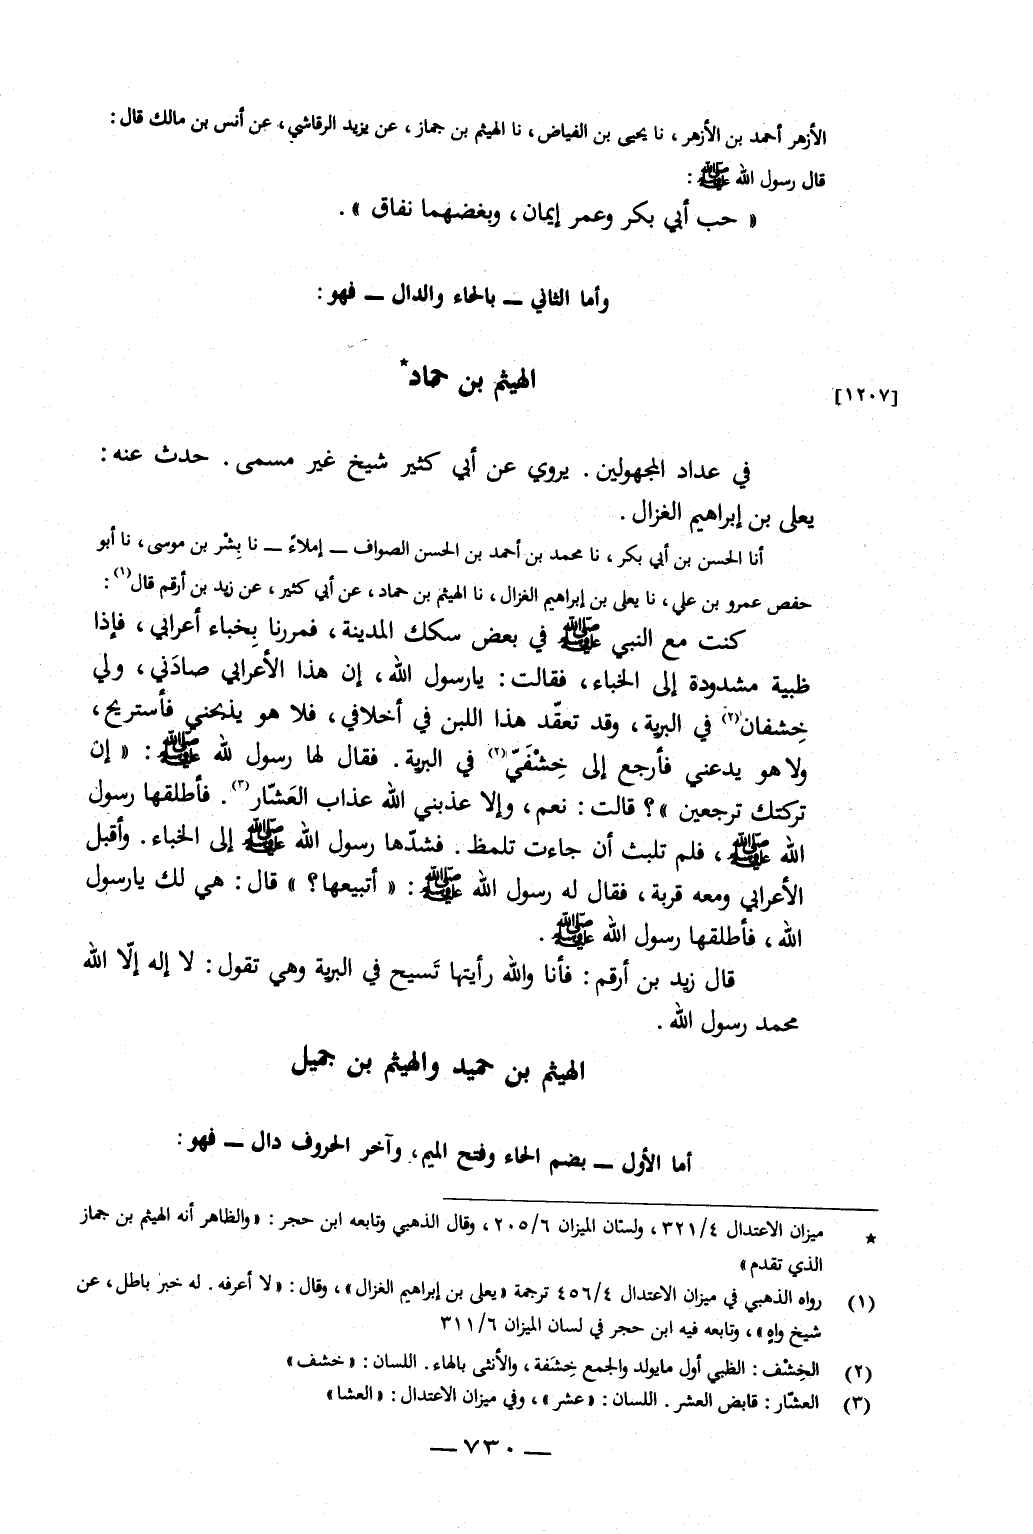 الأزهر أحمد بن الأزهر ، نا يحيى بن الفياض ، نا الهيثم بن جماز ، عن يزيد الرقاشي ، عن أنس بن مالك قال :
قال رسول الله ﷺ :
« حب أبي بكر وعمر إيمان ، وبغضهما نفاق » .
وأما الثاني ــ بالحاء والدال ــ فهو :
[١٢٠٧] الهيثم بن حماد*
في عداد المجهولين . يروي عن أبي كثير شيخ غير مسمى . حدث عنه :
يعلى بن إبراهيم الغزال .
أنا الحسن بن أبي بكر ، نا محمد بن أحمد بن الحسن الصواف ــ إملاءً ــ نا بِشْر بن موسى ، نا أبو
حفص عمرو بن علي ، نا يعلى بن إبراهيم الغزال ، نا الهيثم بن حماد ، عن أبي كثير ، عن زيد بن أرقم قال(١) :
كنت مع النبي ﷺ في بعض سكك المدينة ، فمررنا بِخباء أعرابي ، فإذا
ظبية مشدودة إلى الخباء ، فقالت : يارسول الله ، إن هذا الأعرابي صادَني ، ولي
خِشفان(٢) في البرية ، وقد تعقّد هذا اللبن في أخلافي ، فلا هو يذبحني فأستريح ،
ولا هو يدعني فأرجع إلى خِشْفَيّ(٢) في البرية . فقال لها رسول لله ﷺ : « إن
تركتك ترجعين » ؟ قالت : نعم ، وإلا عذبني الله عذاب العَشّار(٣) . فأطلقها رسول
الله ﷺ ، فلم تلبث أن جاءت تلمظ . فشدّها رسول الله ﷺ إلى الخباء . وأقبل
الأعرابي ومعه قربة ، فقال له رسول الله ﷺ : « أتبيعها ؟ » قال : هي لك يارسول
الله ، فأطلقها رسول الله ﷺ .
قال زيد بن أرقم : فأنا والله رأيتها تَسيح في البرية وهي تقول : لا إله إلّا الله
محمد رسول الله .
الهيثم بن حميد والهيثم بن جميل
أما الأول ــ بضم الحاء وفتح الميم ، وآخر الحروف دال ــ فهو :
★ ميزان الاعتدال ٣٢١/٤ ، ولسان الميزان ٢٠٥/٦ ، وقال الذهبي وتابعه ابن حجر : «والظاهر أنه الهيثم بن جماز
الذي تقدم»
(١) رواه الذهبي في ميزان الاعتدال ٤٥٦/٤ ترجمة «يعلى بن إبراهيم الغزال» ، وقال : «لا أعرفه . له خبر باطل ، عن
شيخ واهٍ» ، وتابعه فيه ابن حجر في لسان الميزان ٣١١/٦
(٢) الخِشْف : الظبي أول مايولد والجمع خِشَفة ، والأنثى بالهاء . اللسان : «خشف»
(٣) العشّار : قابض العشر . اللسان : «عشر» ، وفي ميزان الاعتدال : «العشا»
ــ ٧٣٠ ــ